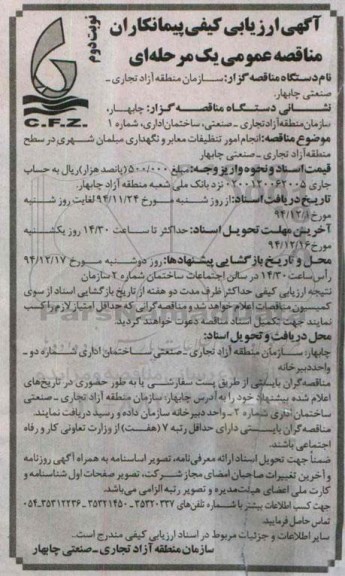 آگهی ارزیابی کیفی پیمانکاران
مناقصه عمومی یک مرحله‌ای
نوبت دوم
C.F.Z.
نام دستگاه مناقصه گزار: سازمان منطقه آزاد تجاری ـ
صنعتی چابهار.
نشانی دستگاه مناقصه گزار: چابهار،
سازمان منطقه آزاد تجاری ـ صنعتی، ساختمان اداری، شماره ۱
موضوع مناقصه: انجام امور تنظیفات معابر و نگهداری مبلمان شهری در سطح
منطقه آزاد تجاری ـ صنعتی چابهار
قیمت اسناد و نحوه واریز وجه: مبلغ ۵۰۰/۰۰۰ (پانصد هزار) ریال به حساب
جاری ۰۲۰۰۱۲۰۰۶۲۰۰۵ نزد بانک ملی شعبه منطقه آزاد چابهار.
تاریخ دریافت اسناد: از روز شنبه مورخ ۹۴/۱۱/۲۴ لغایت روز شنبه
مورخ ۹۴/۱۲/۱
آخرین مهلت تحویل اسناد: حداکثر تا ساعت ۱۴/۳۰ روز یکشنبه
مورخ ۹۴/۱۲/۱۶
محل و تاریخ بازگشایی پیشنهادها: روز دوشنبه مورخ ۹۴/۱۲/۱۷
رأس ساعت ۱۴/۳۰ در سالن اجتماعات ساختمان شماره ۲ سازمان
نتیجه ارزیابی کیفی حداکثر ظرف مدت دو هفته از تاریخ بازگشایی اسناد از سوی
کمیسیون مناقصات اعلام خواهد شد و مناقصه گرانی که حداقل امتیاز لازم را کسب
نمایند جهت تکمیل اسناد مناقصه دعوت خواهند گردید.
محل دریافت و تحویل اسناد:
چابهار، سازمان منطقه آزاد تجاری ـ صنعتی ساختمان اداری شماره دو ـ
واحد دبیرخانه
مناقصه‌گران بایستی از طریق پست سفارشی یا به طور حضوری در تاریخ‌های
اعلام شده پیشنهاد خود را به آدرس چابهار، سازمان منطقه آزاد تجاری ـ صنعتی
ساختمان اداری شماره ۲ ـ واحد دبیرخانه سازمان داده و رسید دریافت نمایند.
مناقصه‌گران بایستی دارای حداقل رتبه ۷ (هفت) از وزارت تعاونی کار و رفاه
اجتماعی باشند.
ضمناً جهت تحویل اسناد ارائه معرفی‌نامه، تصویر اساسنامه به همراه آگهی روزنامه
و آخرین تغییرات صاحبان امضای مجاز شرکت، تصویر صفحات اول شناسنامه و
کارت ملی اعضای هیئت‌مدیره و تصویر رتبه الزامی می‌باشد.
جهت کسب اطلاعات بیشتر با شماره تلفن‌های ۳۵۳۲۰۳۳۷ ـ ۳۵۳۲۱۴۵۰ ـ ۳۵۳۱۲۲۳۶-۰۵۴
تماس حاصل فرمایید.
سایر اطلاعات و جزئیات مربوط در اسناد ارزیابی کیفی مندرج است.
سازمان منطقه آزاد تجاری ـ صنعتی چابهار